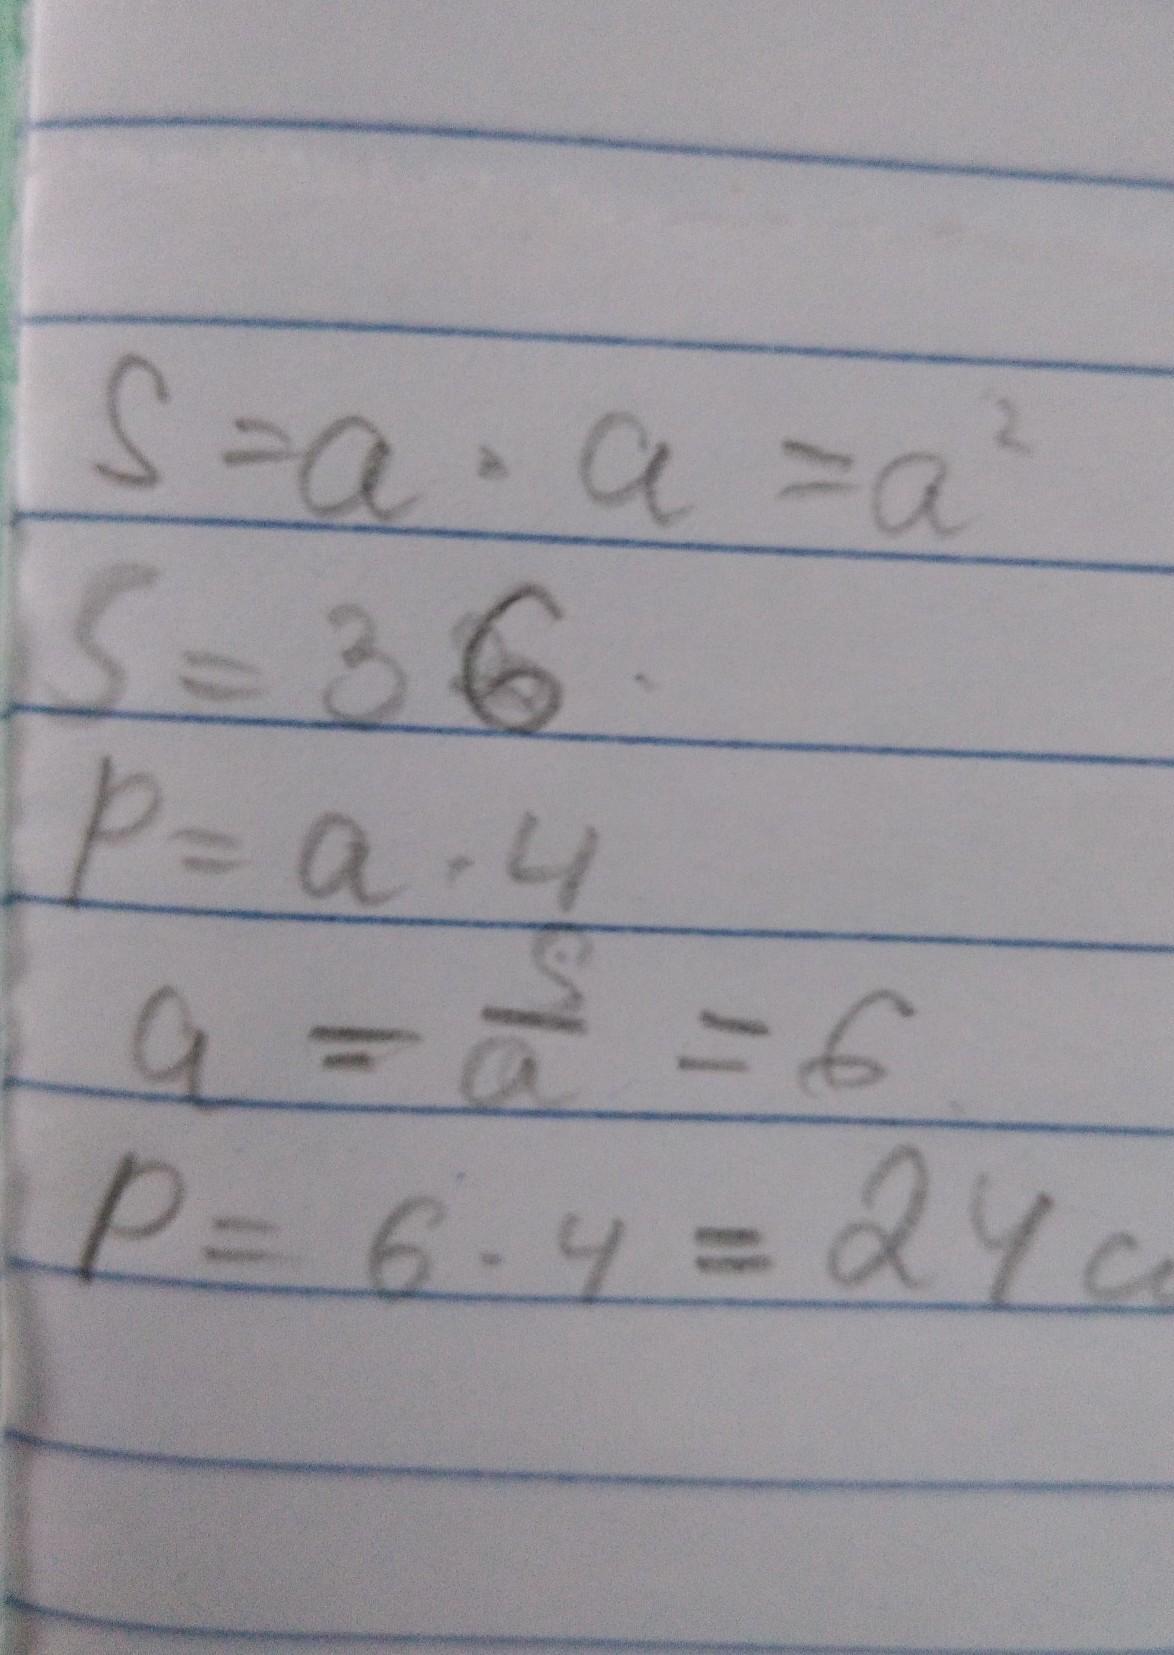 S = a · a = a²
S = 36
P = a · 4
a = S/a = 6
P = 6 · 4 = 24